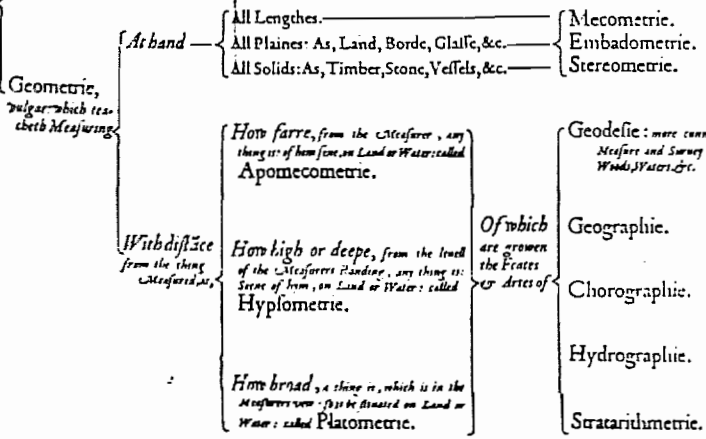 Geometrie,
vulgar: which tea-
cheth Measuring
At hand
All Lengthes.
All Plaines: As, Land, Borde, Glasse, &c.
All Solids: As, Timber, Stone, Vessels, &c.
Mecometrie.
Embadometrie.
Stereometrie.
With distãce
from the thing
Measured, as,
How farre, from the Measurer, any
thing is: of him sene, on Land or Water: called
Apomecometrie.
How high or deepe, from the leuell
of the Measurers standing, any thing is:
Seene of hym, on Land or Water: called
Hypsometrie.
How broad, a thing is, which is in the
Measurers vew: so it be situated on Land or
Water: called Platometrie.
Of which
are growen
the Feates
& Artes of
Geodesie: more cunn
Measure and Suruey
Woods, Waters. &c.
Geographie.
Chorographie.
Hydrographie.
Stratarithmetrie.